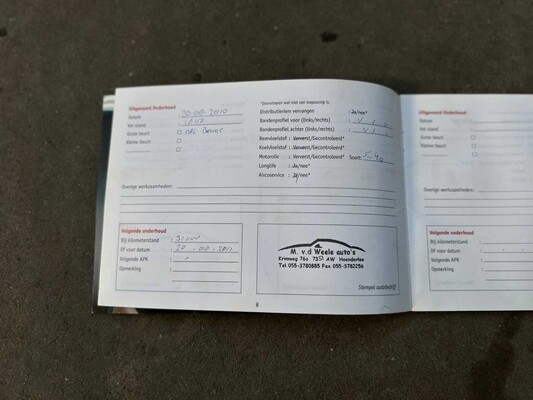 Uitgevoerd Onderhoud
Datum : 30-08-2010
Km stand
Grote beurt
Kleine beurt
*Doorstrepen wat niet van toepassing is.
Distributieriem vervangen : Ja/nee*
Bandenprofiel voor (links/rechts)
Bandenprofiel achter (links/rechts)
Remvloeistof : Ververst/Gecontroleerd*
Koelvloeistof : Ververst/Gecontroleerd*
Motorolie : Ververst/Gecontroleerd* Soort: 5-40
Longlife : Ja/nee*
Aircoservice : Ja/nee*
Overige werkzaamheden:
Volgende onderhoud
Bij kilometerstand
Of voor datum
Volgende APK :
Opmerking :
M. v.d Weele auto's
Krimweg 76a 7351 AW Hoenderloo
Tel 055-3780885 Fax 055-3782256
Stempel autobedrijf
8
Uitgevoerd Onderhoud
Datum :
Km stand :
Grote beurt
Kleine beurt
Overige werkzaamheden:
Volgende onderhoud
Bij kilometerstand :
Of voor datum :
Volgende APK :
Opmerking :